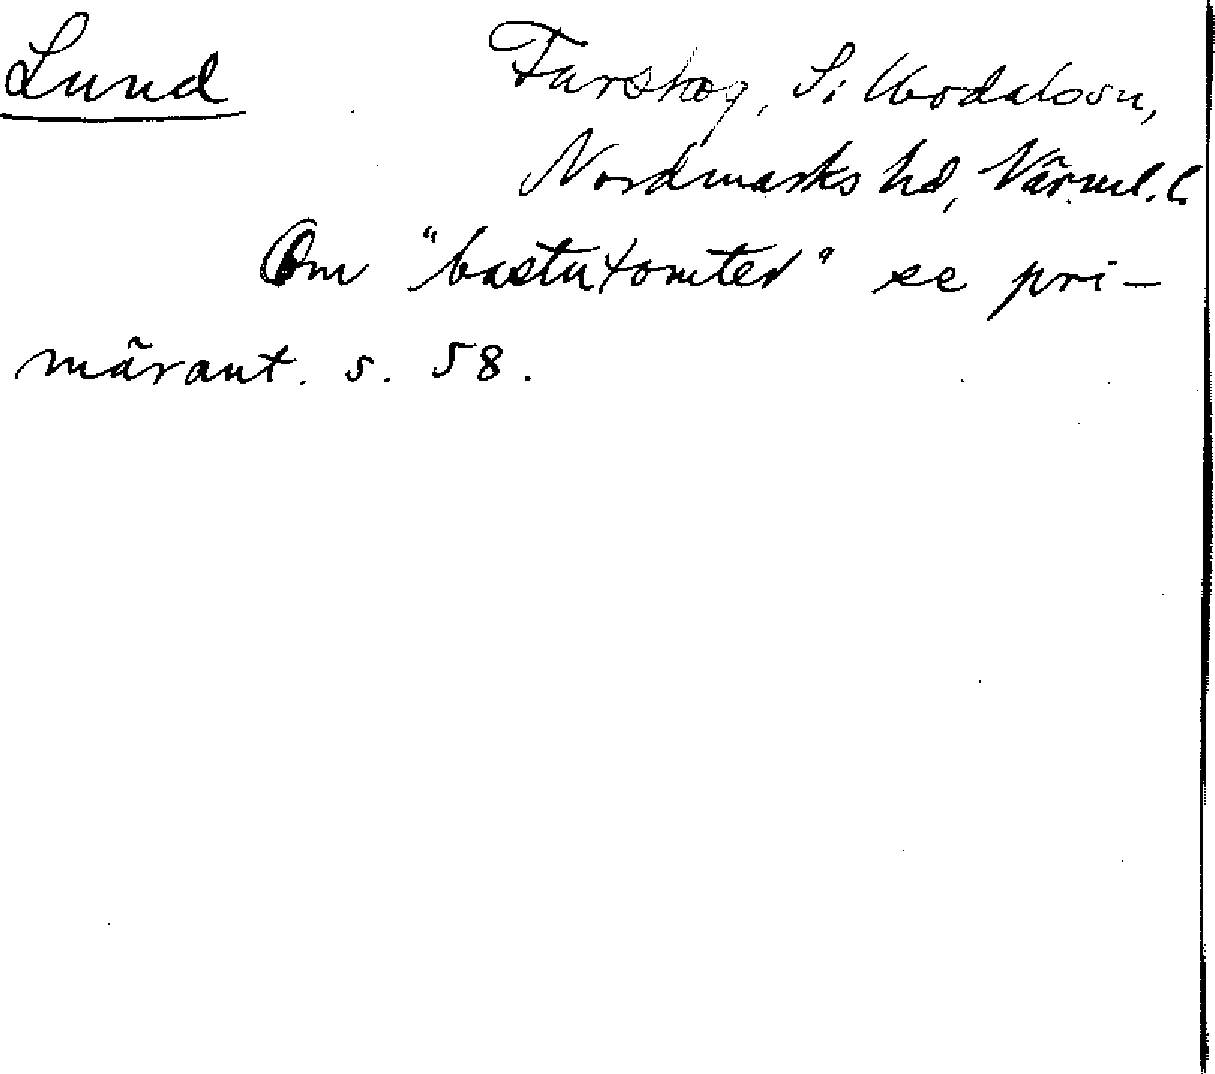 Lund Farskog, Sillbodals sn,
Nordmarks hd, Värml. l.
Om "bastutomten" se pri-
märant. s. 58.